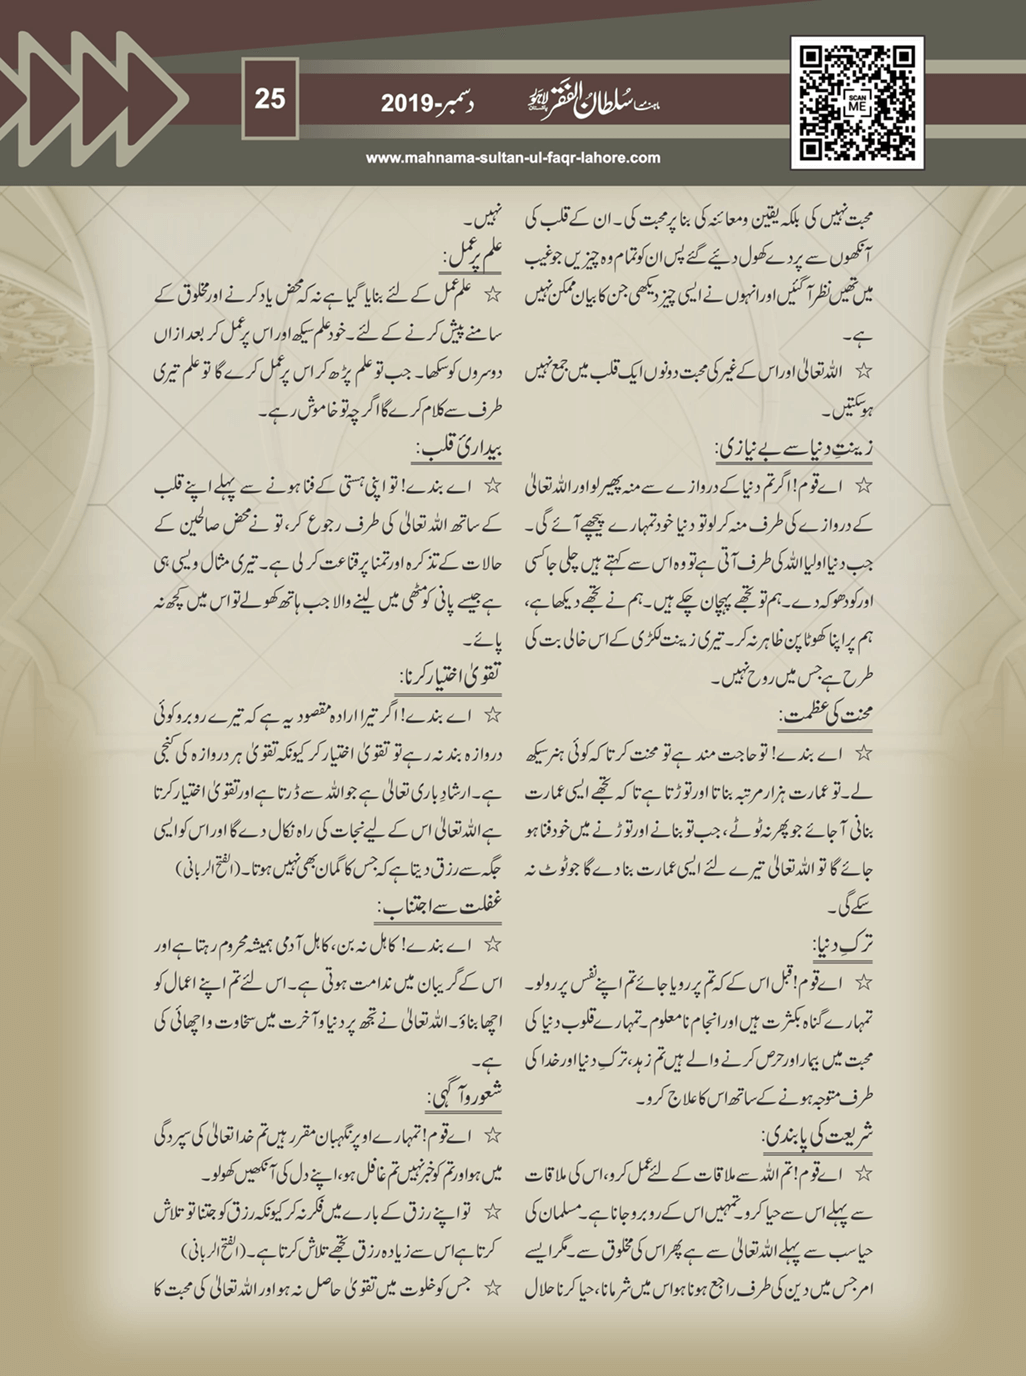 25
دسمبر-2019
ماہنامہ سُلطان الفقر لاہور
SCAN ME
www.mahnama-sultan-ul-faqr-lahore.com
محبت نہیں کی بلکہ یقین ومعائنہ کی بنا پر محبت کی۔ ان کے قلب کی
آنکھوں سے پردے کھول دیئے گئے پس ان کو تمام وہ چیزیں جو غیب
میں تھیں نظر آگئیں اور انہوں نے ایسی چیز دیکھی جن کا بیان ممکن نہیں
ہے۔
☆ اللہ تعالیٰ اور اس کے غیر کی محبت دونوں ایک قلب میں جمع نہیں
ہو سکتیں۔
زینتِ دنیا سے بے نیازی:
☆ اے قوم! اگر تم دنیا کے دروازے سے منہ پھیر لو اور اللہ تعالیٰ
کے دروازے کی طرف منہ کر لو تو دنیا خود تمہارے پیچھے آئے گی۔
جب دنیا اولیا اللہ کی طرف آتی ہے تو وہ اس سے کہتے ہیں چلی جا کسی
اور کو دھوکہ دے۔ ہم تو تجھے پہچان چکے ہیں۔ ہم نے تجھے دیکھا ہے،
ہم پر اپنا کھوٹا پن ظاہر نہ کر۔ تیری زینت لکڑی کے اس خالی بت کی
طرح ہے جس میں روح نہیں۔
محنت کی عظمت:
☆ اے بندے! تو حاجت مند ہے تو محنت کر تا کہ کوئی ہنر سیکھ
لے۔ تو عمارت ہزار مرتبہ بناتا اور توڑتا ہے تا کہ تجھے ایسی عمارت
بنانی آ جائے جو پھر نہ ٹوٹے، جب تو بنانے اور توڑنے میں خود فنا ہو
جائے گا تو اللہ تعالیٰ تیرے لئے ایسی عمارت بنا دے گا جو ٹوٹ نہ
سکے گی۔
ترکِ دنیا:
☆ اے قوم! قبل اس کے کہ تم پر رویا جائے تم اپنے نفس پر رولو۔
تمہارے گناہ بکثرت ہیں اور انجام نامعلوم۔ تمہارے قلوب دنیا کی
محبت میں بیمار اور حرص کرنے والے ہیں تم زہد، ترکِ دنیا اور خدا کی
طرف متوجہ ہونے کے ساتھ اس کا علاج کرو۔
شریعت کی پابندی:
☆ اے قوم! تم اللہ سے ملاقات کے لئے عمل کرو، اس کی ملاقات
سے پہلے اس سے حیا کرو۔ تمہیں اس کے روبرو جانا ہے۔ مسلمان کی
حیا سب سے پہلے اللہ تعالیٰ سے ہے پھر اس کی مخلوق سے۔ مگر ایسے
امر جس میں دین کی طرف راجع ہونا ہو اس میں شرمانا، حیا کرنا حلال
نہیں۔
علم پر عمل:
☆ علم عمل کے لئے بنایا گیا ہے نہ کہ محض یاد کرنے اور مخلوق کے
سامنے پیش کرنے کے لئے۔ خود علم سیکھ اور اس پر عمل کر بعد ازاں
دوسروں کو سکھا۔ جب تو علم پڑھ کر اس پر عمل کرے گا تو علم تیری
طرف سے کلام کرے گا اگرچہ تو خاموش رہے۔
بیداریٔ قلب:
☆ اے بندے! تو اپنی ہستی کے فنا ہونے سے پہلے اپنے قلب
کے ساتھ اللہ تعالیٰ کی طرف رجوع کر، تو نے محض صالحین کے
حالات کے تذکرہ اور تمنا پر قناعت کر لی ہے۔ تیری مثال ویسی ہی
ہے جیسے پانی کو مٹھی میں لینے والا جب ہاتھ کھولے تو اس میں کچھ نہ
پائے۔
تقویٰ اختیار کرنا:
☆ اے بندے! اگر تیرا ارادہ مقصود یہ ہے کہ تیرے روبرو کوئی
دروازہ بند نہ رہے تو تقویٰ اختیار کر کیونکہ تقویٰ ہر دروازہ کی کنجی
ہے۔ ارشادِ باری تعالیٰ ہے جو اللہ سے ڈرتا ہے اور تقویٰ اختیار کرتا
ہے اللہ تعالیٰ اس کے لیے نجات کی راہ نکال دے گا اور اس کو ایسی
جگہ سے رزق دیتا ہے کہ جس کا گمان بھی نہیں ہوتا۔ (الفتح الربانی)
غفلت سے اجتناب:
☆ اے بندے! کاہل نہ بن، کاہل آدمی ہمیشہ محروم رہتا ہے اور
اس کے گریبان میں ندامت ہوتی ہے۔ اس لئے تم اپنے اعمال کو
اچھا بناؤ۔ اللہ تعالیٰ نے تجھ پر دنیا و آخرت میں سخاوت و اچھائی کی
ہے۔
شعور و آگہی:
☆ اے قوم! تمہارے اوپر نگہبان مقرر ہیں تم خدا تعالیٰ کی سپردگی
میں ہو اور تم کو خبر نہیں تم غافل ہو، اپنے دل کی آنکھیں کھولو۔
☆ تو اپنے رزق کے بارے میں فکر نہ کر کیونکہ رزق کو جتنا تو تلاش
کرتا ہے اس سے زیادہ رزق تجھے تلاش کرتا ہے۔ (الفتح الربانی)
☆ جس کو خلوت میں تقویٰ حاصل نہ ہو اور اللہ تعالیٰ کی محبت کا